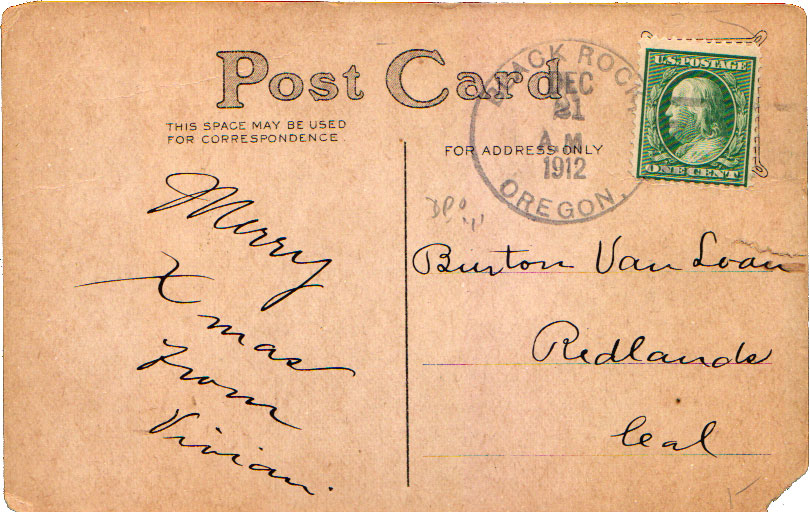 Post Card
THIS SPACE MAY BE USED
FOR CORRESPONDENCE.
FOR ADDRESS ONLY
BLACK ROCK,
DEC
21
A.M.
1912
OREGON.
U.S. POSTAGE
ONE CENT
Merry
Xmas
from
Vivian.
Burton Van Loan
Redlands
Cal